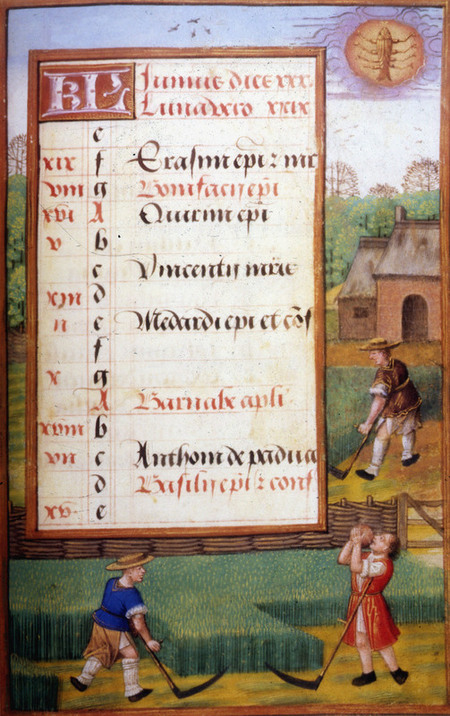 KL Junius dies xxx.
Luna vero xxix
e
xix f Erasmi epi z mr
viii g Bonifacii epi
xvi A Quirini epi
v b
c Vincentii mris
xiii d
ii e Medardi epi et cōf
f
x g
A Barnabe apli
xviii b
vii c Anthoni de padua
d Basilii epi z conf
xv e